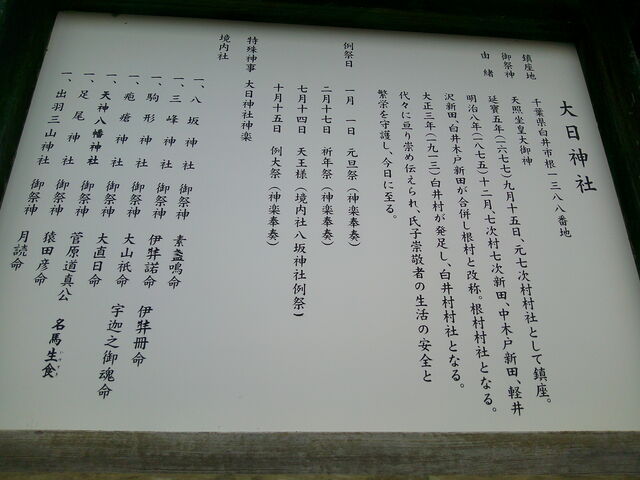 大日神社
鎮座地　千葉県白井市根一三八八番地
御祭神　天照坐皇大御神
由緒　延寶五年(一六七七)九月十五日、元七次村村社として鎮座。
明治八年(一八七五)十二月、七次村七次新田、中木戸新田、軽井
沢新田、白井木戸新田が合併し根村と改称。根村村社となる。
大正三年(一九一三)白井村が発足し、白井村村社となる。
代々に亘り崇め伝えられ、氏子崇敬者の生活の安全と
繁栄を守護し、今日に至る。
例祭日　一月　一日　元旦祭(神楽奉奏)
二月十七日　祈年祭(神楽奉奏)
七月十四日　天王様(境内社八坂神社例祭)
十月十五日　例大祭(神楽奉奏)
特殊神事　大日神社神楽
境内社
一、八坂神社　御祭神　素盞鳴命
一、三峰神社　御祭神　伊弉諾命　伊弉冊命
一、駒形神社　御祭神　大山祇命　宇迦之御魂命
一、疱瘡神社　御祭神　大直日命
一、天神八幡神社　御祭神　菅原道真公　名馬生食
一、足尾神社　御祭神　猿田彦命
一、出羽三山神社　御祭神　月読命